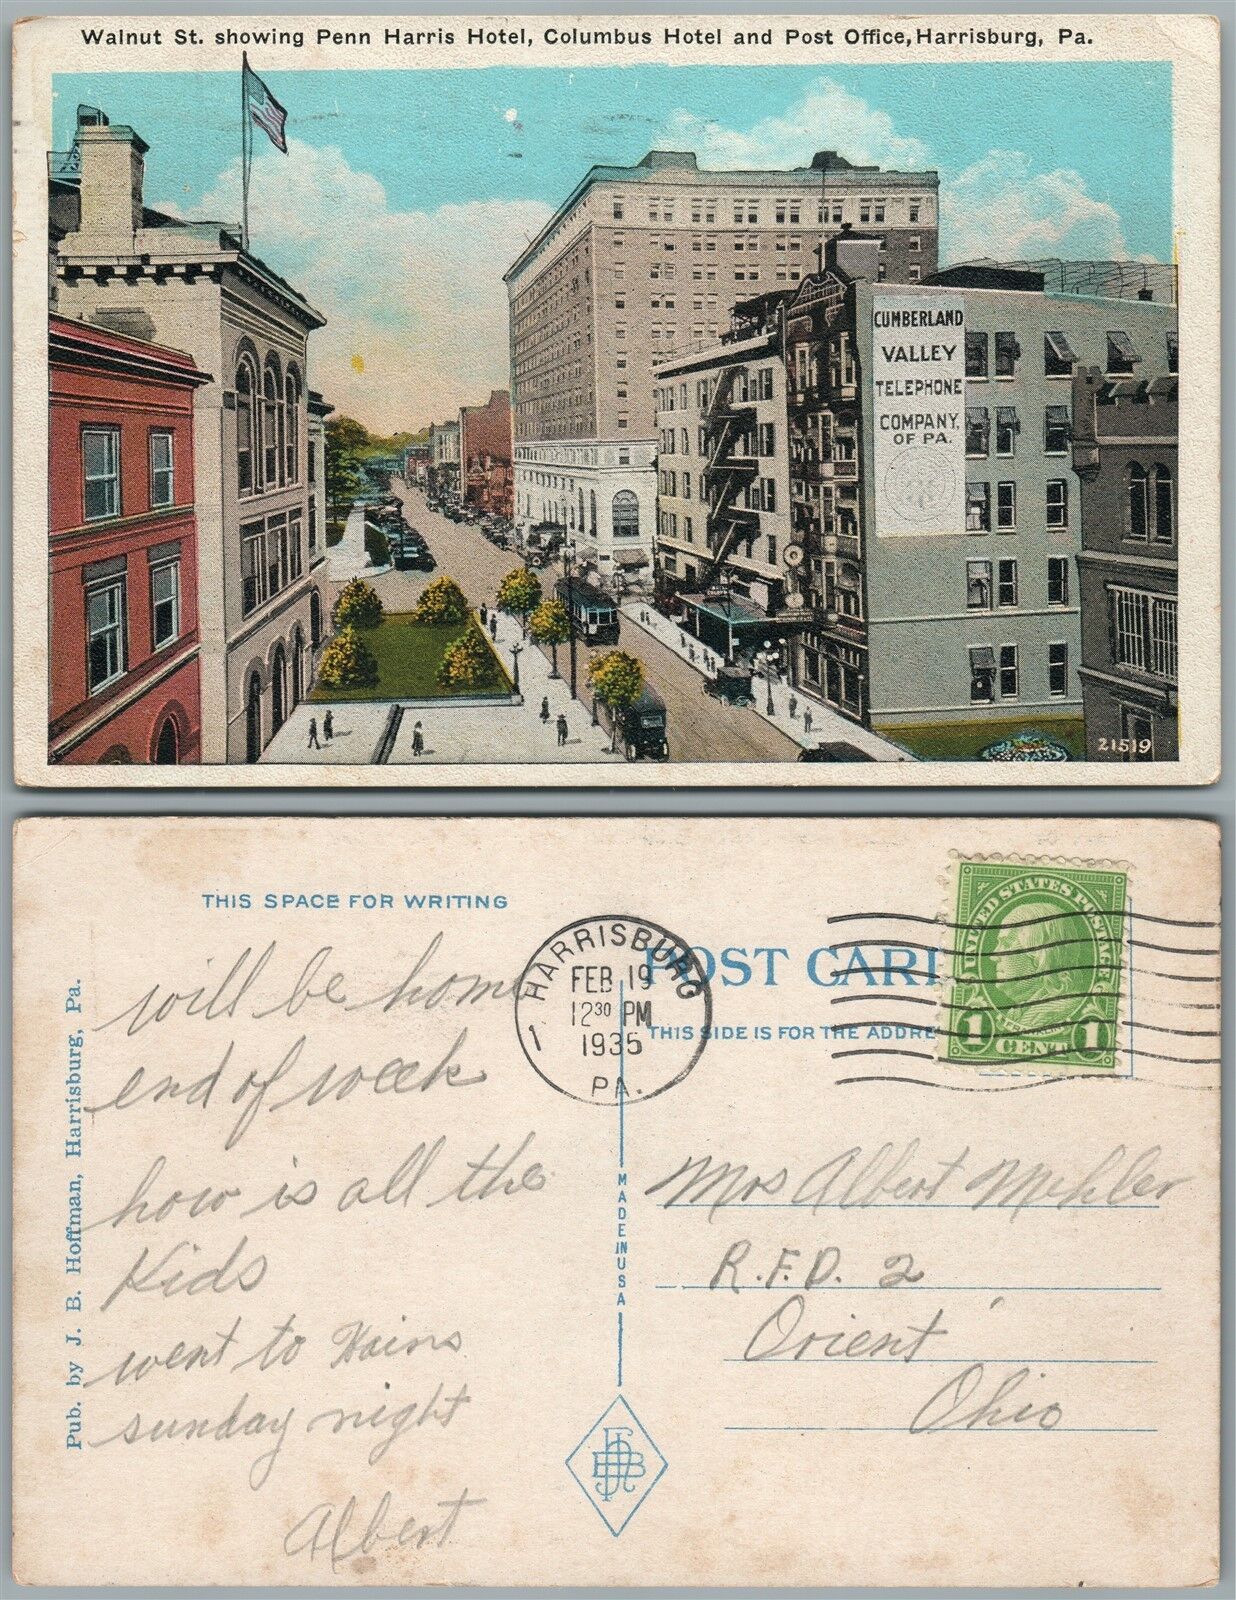 Walnut St. showing Penn Harris Hotel, Columbus Hotel and Post Office, Harrisburg, Pa.
CUMBERLAND
VALLEY
TELEPHONE
COMPANY.
OF PA.
21519
THIS SPACE FOR WRITING
will be home
end of week
how is all the
Kids
went to Hains
sunday night
Albert
Pub. by J. B. Hoffman, Harrisburg, Pa.
HARRISBURG
FEB 19
12 30 PM
1935
PA.
1
POST CARD
THIS SIDE IS FOR THE ADDRE
UNITED STATES POSTAGE
1 1
CENT
MADE IN USA
Mrs Albert Mehler
R.F.D. 2
Orient
Ohio